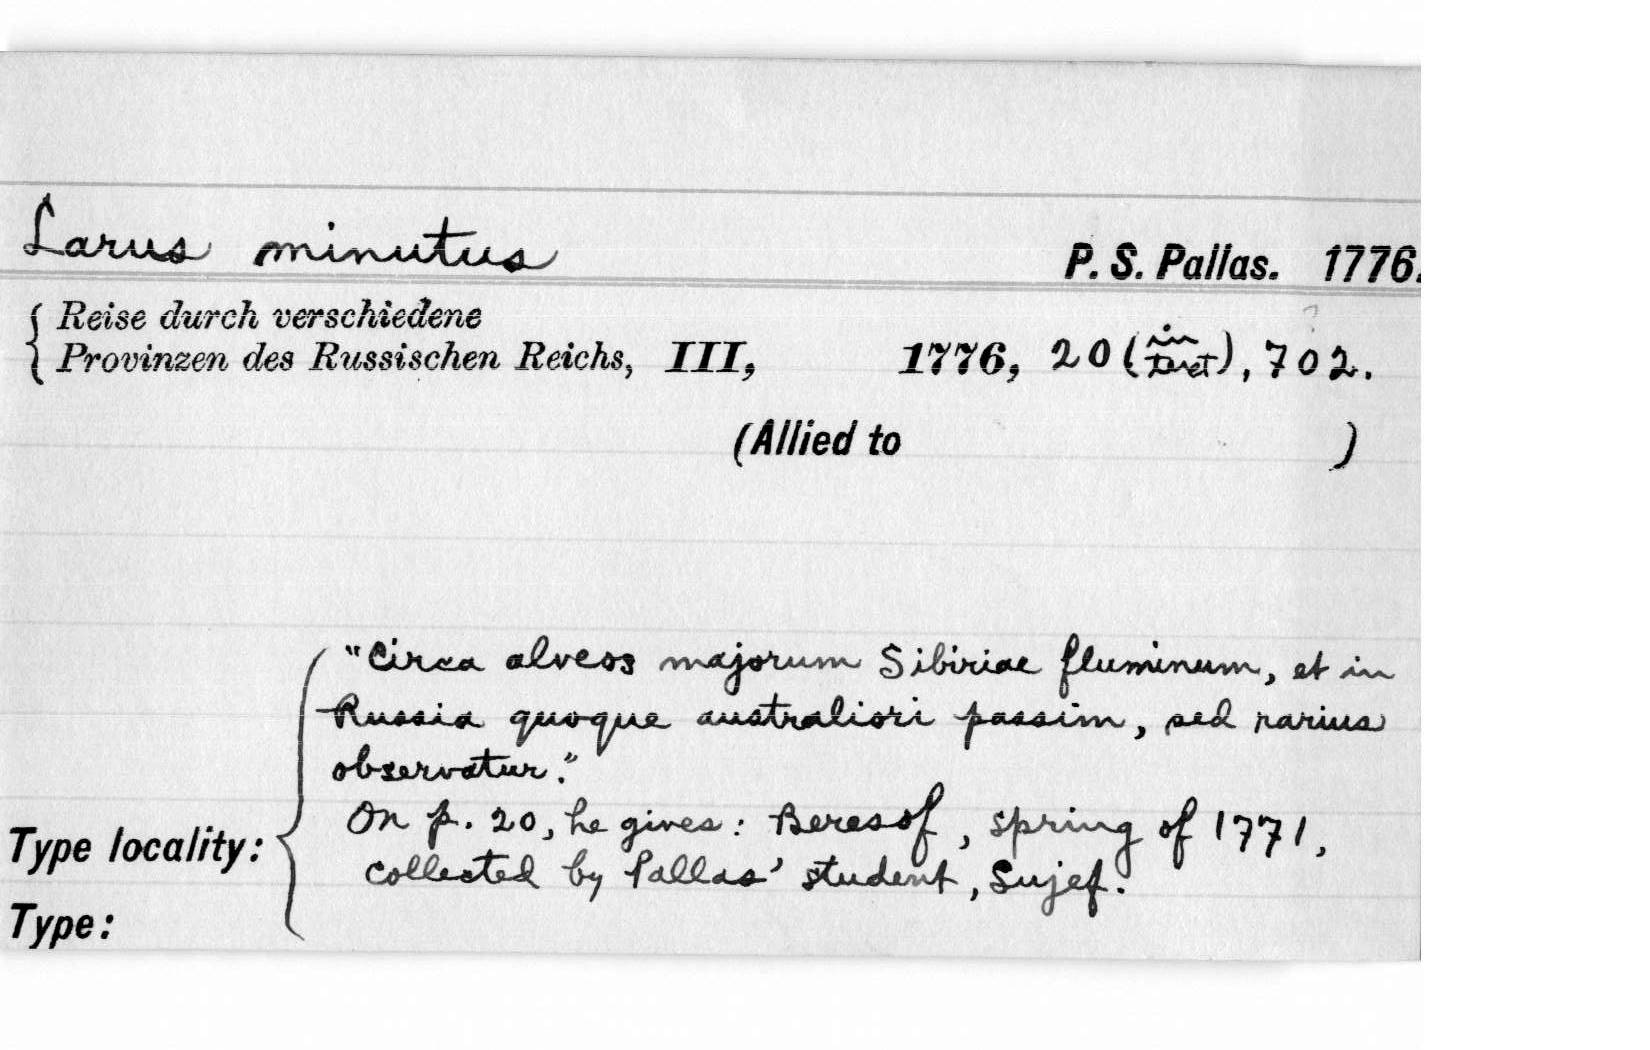 Larus minutus
P. S. Pallas. 1776.
Reise durch verschiedene
Provinzen des Russischen Reichs, III, 1776, 20 (in text), 702.
(Allied to )
"Circa alveos majorum Sibiriae fluminum, et in
Russia quoque australiori passim, sed rarius
observatur."
On p. 20, he gives: Beresof, spring of 1771,
collected by Pallas' student, Sujef.
Type locality:
Type: